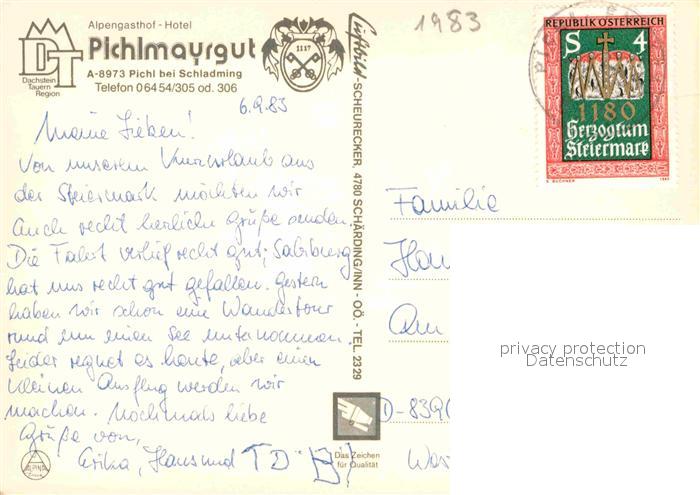 Alpengasthof - Hotel
Pichlmayrgut
A-8973 Pichl bei Schladming
Telefon 06454/305 od. 306
DT
Dachstein
Tauern
Region
1117
6.9.83
Meine Lieben!
Von unserem Kurzurlaub aus
der Steiermark möchten wir
auch recht herzliche Grüße senden.
Die Fahrt verlief recht gut; Salzburg
hat uns recht gut gefallen. Gestern
haben wir schon eine Wandertour
rund um einen See unternommen.
Leider regnet es heute, aber einen
kleinen Ausflug werden wir
machen. Nochmals liebe
Grüße von,
Erika, Hans und
ALPINA
Luftbild-SCHEURECKER, 4780 SCHÄRDING/INN - OÖ. - TEL. 2329
Das Zeichen
für Qualität
1983
REPUBLIK ÖSTERREICH
S 4
1180
Herzogtum
Steiermark
Familie
D-839
privacy protection
Datenschutz